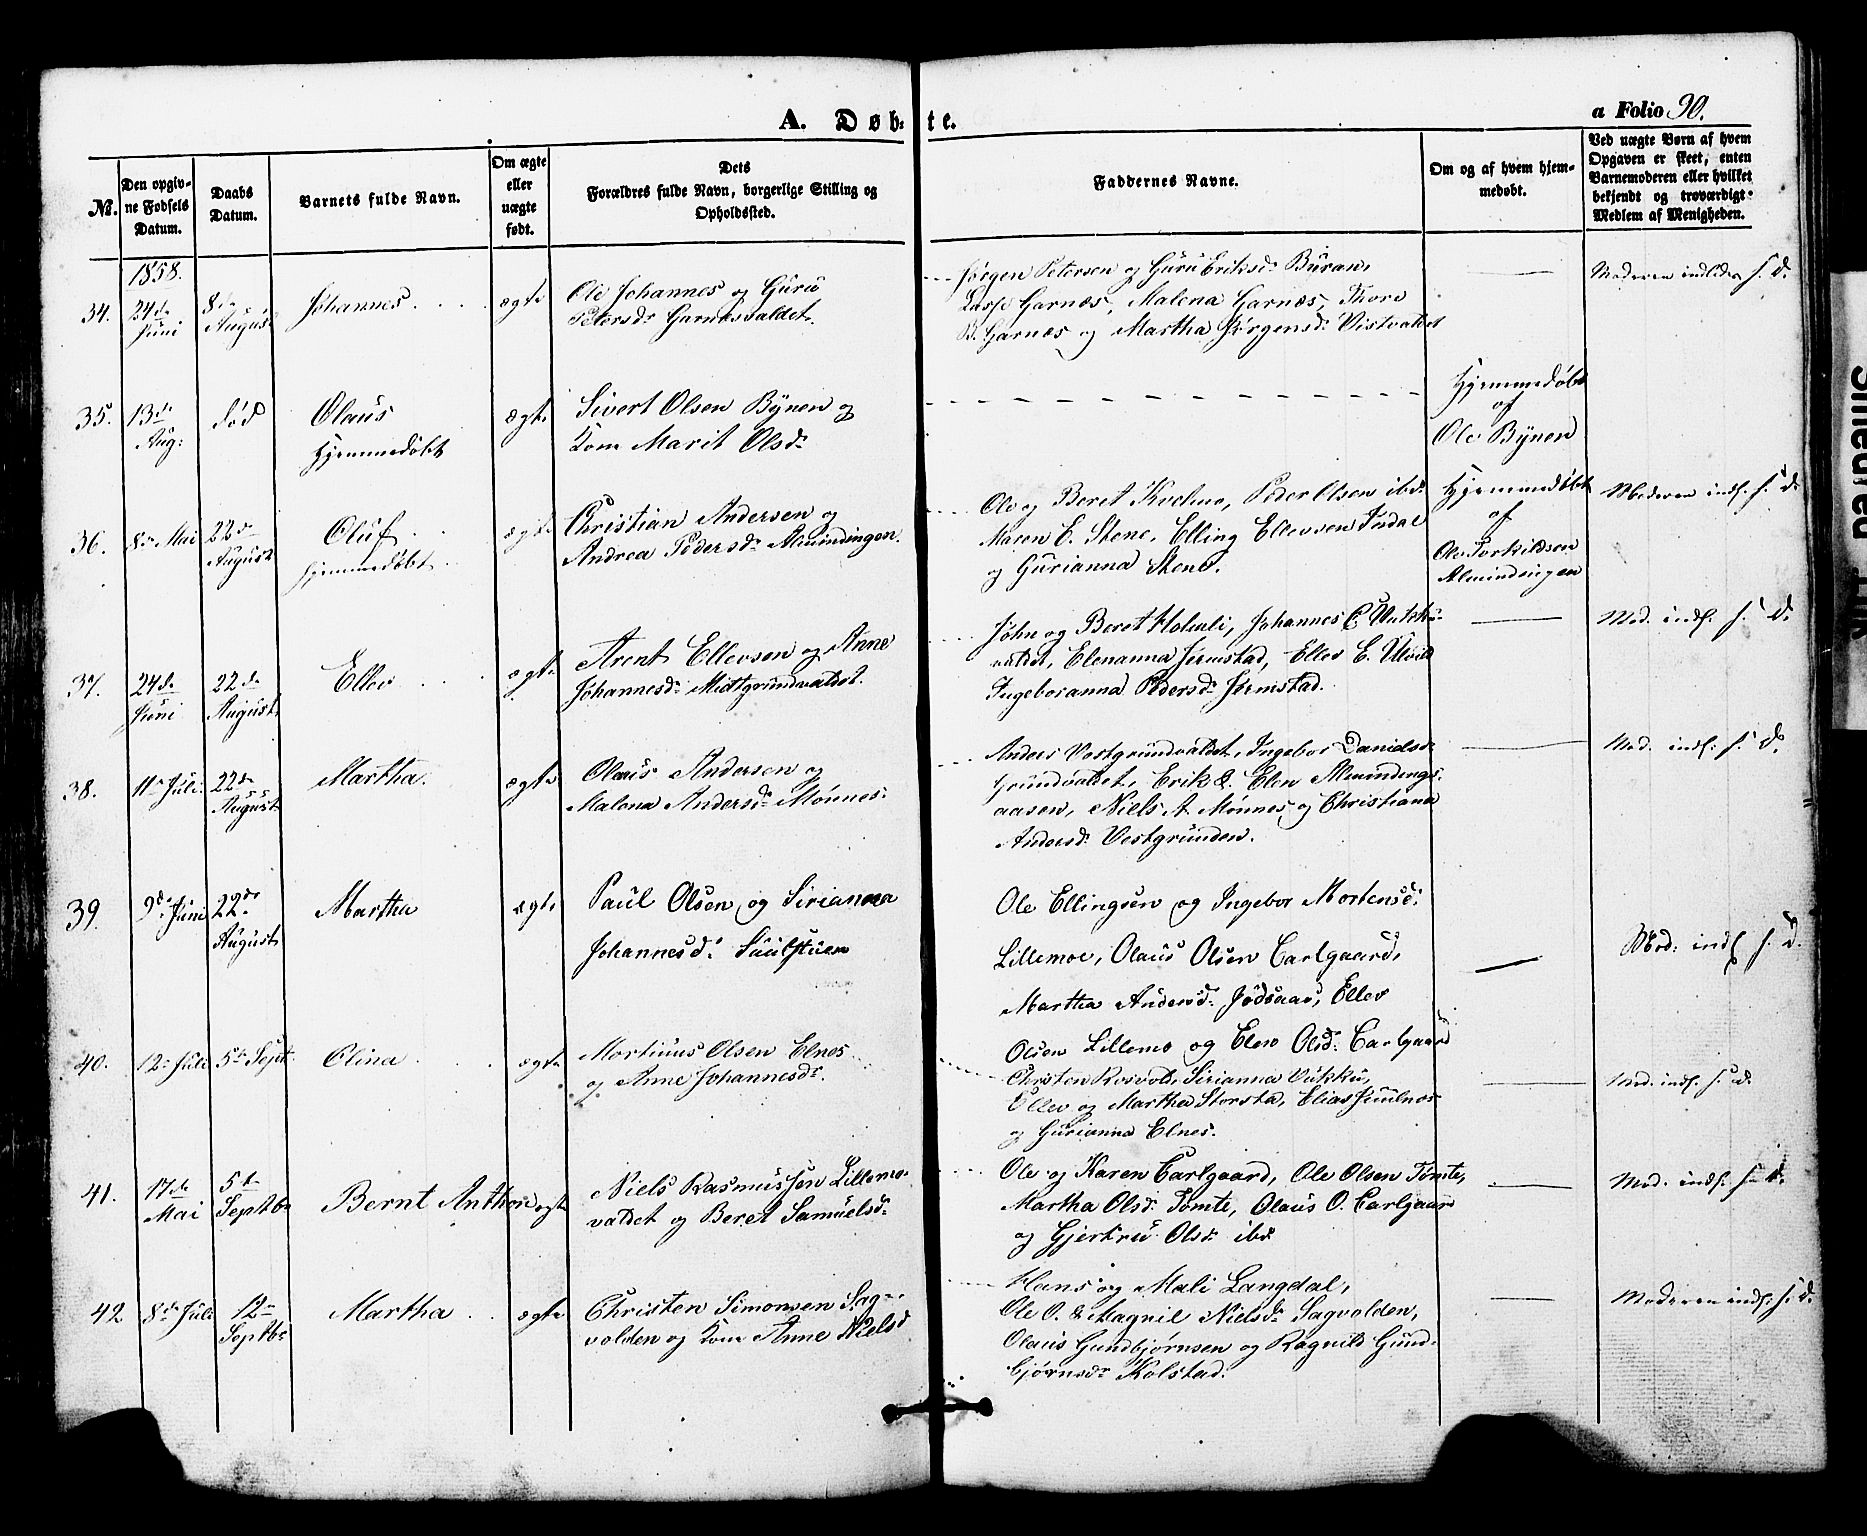 A. Døb-te.
a Folio 90.
№.
Den opgiv-
ne Fødsels
Datum.
Daabs
Datum.
Barnets fulde Navn.
Om ægte
eller
uægte
født.
Dets
Forældres fulde Navn, borgerlige Stilling og
Opholdssted.
Faddernes Navne.
Om og af hvem hjem-
medøbt.
Ved uægte Børn af hvem
Opgaven er skeet, enten
Barnemoderen eller hvilket
bekjendt og troværdigt
Medlem af Menigheden.
1858.
34.
24de
Juni
8de
August
Johannes
ægte
Ole Johannes og Guru
Petersdr Garnæsvaldet.
Jørgen Petersen og Guru Eriksdr Buran,
Lasse Garnæs, Malena Garnæs, Thore
B. Garnæs og Martha Jørgensdr Vistvaldet
Moderen indleder s. d.
35.
13de
Aug:
død
Olaus
Hjemmedøbt
ægte
Sivert Olsen Bynen og
Kone Marit Olsdr
Hjemmedøbt
af
Ole Bynen
36.
8de Mai
22de
August
Oluf
hjemmedøbt
ægte
Christian Andersen og
Andrea Pedersdr Almindingen.
Ole og Beret Kvelmo, Peder Olsen ibd
Maren E. Stene, Elling Ellevsen Indal
og Gurianna Stene.
Hjemmedøbt
af
Ole Torkildsen
Almindingen
Moderen indl. s. d.
37.
24de
Juni
22de
August
Ellev
ægte
Arent Ellevsen og Anne
Johannesdr Midtgrundvaldet.
John og Beret Holmli, Johannes E. Vukku-
valdet, Elenanna Jermstad, Ellev E. Ulvild
Ingeboranna Pedersdr Jermstad.
Mod. indl. s. d.
38.
11te Juli
22de
August
Martha.
ægte
Olaus Andersen og
Malena Andersdr Mönnes.
Anders Vestgrundvaldet, Ingebor Danielsdr
Grundvaldet, Erik & Elen Almindings-
aasen, Niels A. Mönnes og Christiana
Andersdr Vestgrunden.
Mod. indl. s. d.
39.
9de Juni
22de
August
Martha
ægte
Paul Olsen og Sirianna
Johannesd. Saulstuen
Ole Ellingsen og Ingebor Mortensd.
Lillemoe, Olaus Olsen Carlgaard,
Martha Andersd. Jødsaas, Ellev
Olsen Lillemo og Elen Olsd. Carlgaard
Mod. indl s. d.
40.
12te Juli
5te Sept.
Olina
ægte
Mortinus Olsen Elnes
og Anne Johannesdr.
Christen Rosvold, Sirianna Vukku,
Ellev og Martha Storstad, Elias Juulnes
og Gurianna Elnes.
Mod. indl. s. d.
41.
17de
Mai
5te
Septbr
Bernt Anthon
ægte
Niels Rasmussen Lillemo-
valdet og Beret Samuelsdr
Ole og Karen Carlgaard, Ole Olsen Tømte,
Martha Olsdr Tømte, Olaus O. Carlgaard
og Gjertrud Olsdr ibd
Mod. indl. s. d.
42
8de Juli
12te
Septbr
Martha
ægte
Christen Simonsen Sag-
volden og Kone Anne Nielsd
Hans og Mali Langdal,
Ole O. & Magnil Nielsdr Sagvolden,
Olaus Gundbjørnsen og Ragnild Gund-
bjørnsdr Kolstad.
Moderen indl. s. d.